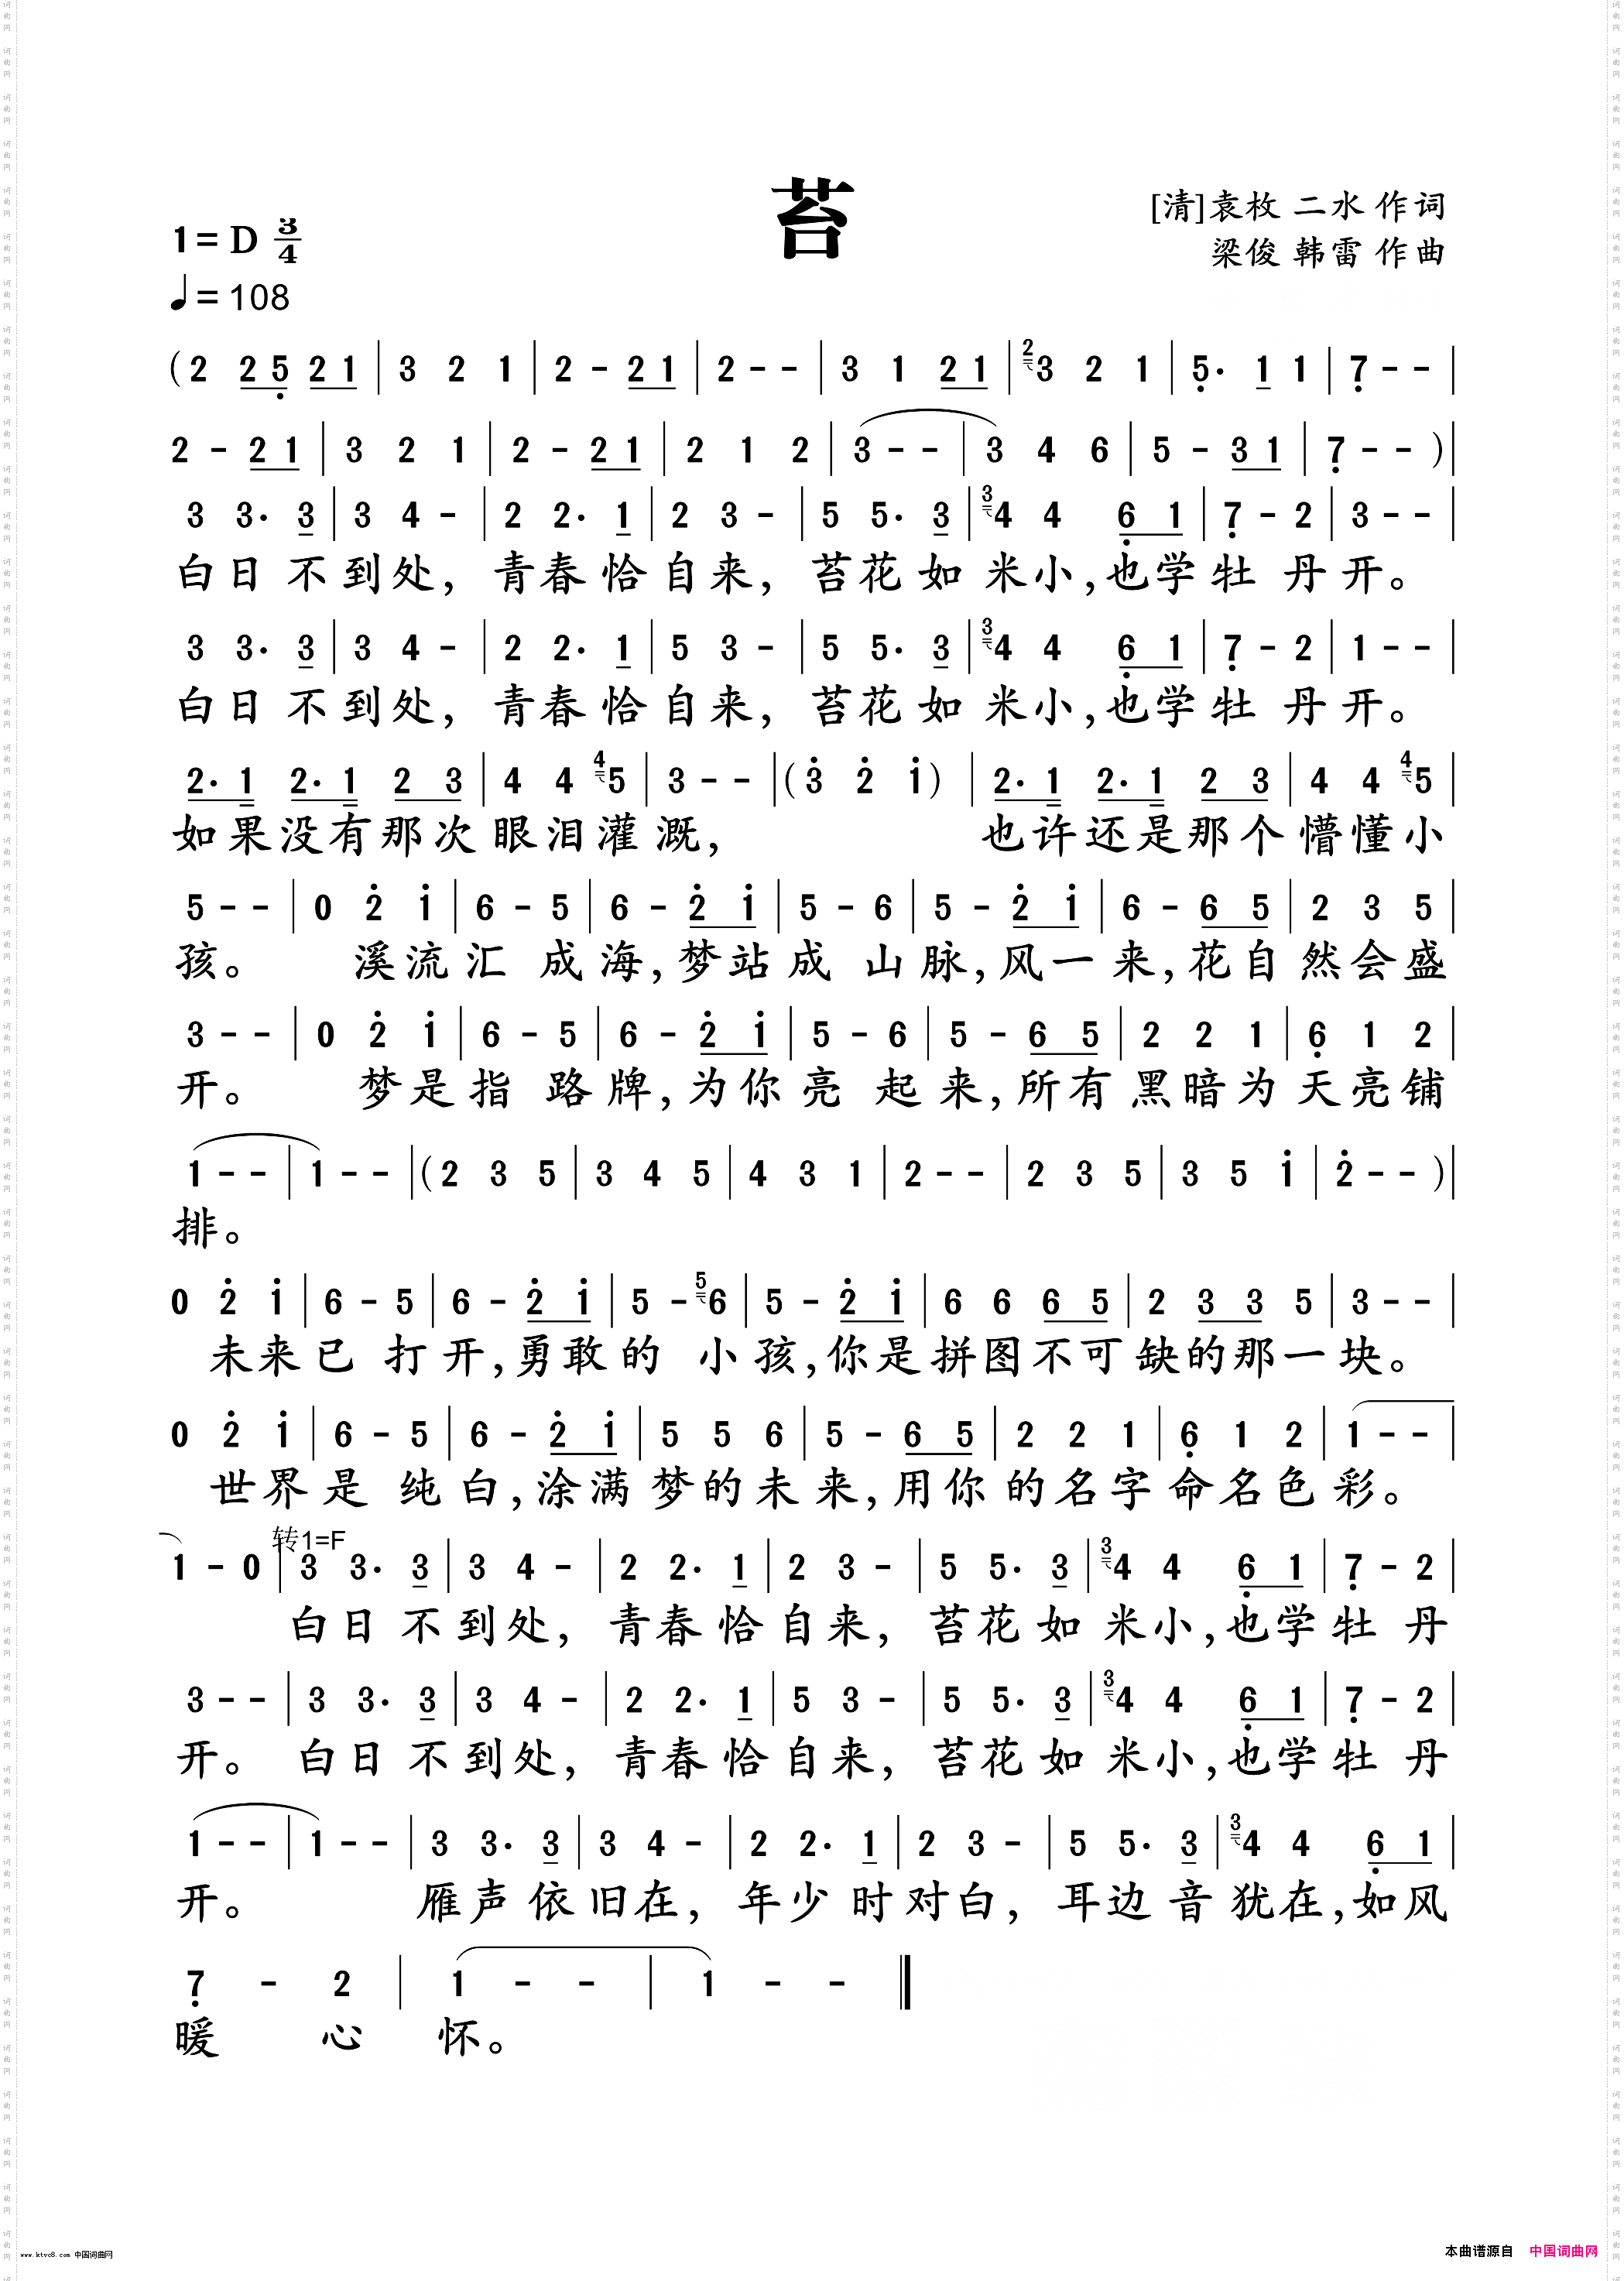 苔
[清]袁枚 二水 作词
1=D 3/4
梁俊 韩雷 作曲
♩=108
(2 2 5̣ 2 1 | 3 2 1 | 2 - 2 1 | 2 - - | 3 1 2 1 | ²3 2 1 | 5̣· 1 1 | 7̣ - - |
2 - 2 1 | 3 2 1 | 2 - 2 1 | 2 1 2 | 3 - - | 3 4 6 | 5 - 3 1 | 7̣ - - )|
3 3· 3 | 3 4 - | 2 2· 1 | 2 3 - | 5 5· 3 | ³4 4 6̣ 1 | 7̣ - 2 | 3 - - |
白日 不到处, 青春 恰 自来, 苔花 如 米小,也学 牡 丹 开。
3 3· 3 | 3 4 - | 2 2· 1 | 5 3 - | 5 5· 3 | ³4 4 6̣ 1 | 7̣ - 2 | 1 - - |
白日 不到处, 青春 恰 自来, 苔花 如 米小,也学 牡 丹 开。
2· 1 2· 1 2 3 | 4 4 ⁴5 | 3 - - |(3̇ 2̇ 1̇) | 2· 1 2· 1 2 3 | 4 4 ⁴5 |
如果没有那次 眼泪灌 溉, 也许还是那个 懵懂小
5 - - | 0 2̇ 1̇ | 6 - 5 | 6 - 2̇ 1̇ | 5 - 6 | 5 - 2̇ 1̇ | 6 - 6 5 | 2 3 5 |
孩。 溪流汇 成海,梦站成 山脉,风一 来,花自 然会盛
3 - - | 0 2̇ 1̇ | 6 - 5 | 6 - 2̇ 1̇ | 5 - 6 | 5 - 6 5 | 2 2 1 | 6̣ 1 2 |
开。 梦是指 路牌,为你亮 起来,所有 黑暗为 天亮铺
1 - - | 1 - - |(2 3 5 | 3 4 5 | 4 3 1 | 2 - - | 2 3 5 | 3 5 1̇ | 2̇ - - )|
排。
0 2̇ 1̇ | 6 - 5 | 6 - 2̇ 1̇ | 5 - ⁵6 | 5 - 2̇ 1̇ | 6 6 6 5 | 2 3 3 5 | 3 - - |
未来已 打开,勇敢的 小孩,你是拼图不可 缺的那一块。
0 2̇ 1̇ | 6 - 5 | 6 - 2̇ 1̇ | 5 5 6 | 5 - 6 5 | 2 2 1 | 6̣ 1 2 | 1 - - |
世界是 纯白,涂满 梦的未来,用你 的名字 命名色彩。
转1=F
1 - 0 | 3 3· 3 | 3 4 - | 2 2· 1 | 2 3 - | 5 5· 3 | ³4 4 6̣ 1 | 7̣ - 2 |
白日 不到处, 青春 恰 自来, 苔花 如 米小,也学 牡 丹
3 - - | 3 3· 3 | 3 4 - | 2 2· 1 | 5 3 - | 5 5· 3 | ³4 4 6̣ 1 | 7̣ - 2 |
开。 白日 不到处, 青春 恰 自来, 苔花 如 米小,也学 牡 丹
1 - - | 1 - - | 3 3· 3 | 3 4 - | 2 2· 1 | 2 3 - | 5 5· 3 | ³4 4 6̣ 1 |
开。 雁声 依旧在, 年少 时对白, 耳边 音犹在,如风
7̣ - 2 | 1 - - | 1 - - ‖
暖 心 怀。
www.ktvc8.com 中国词曲网
本曲谱源自 中国词曲网